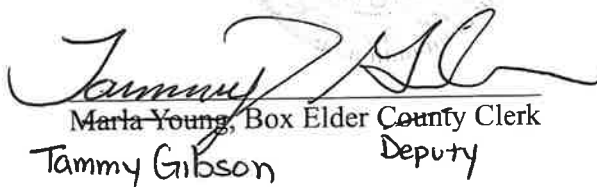 Tammy J Gibson
Marla Young, Box Elder County Clerk
Tammy Gibson Deputy